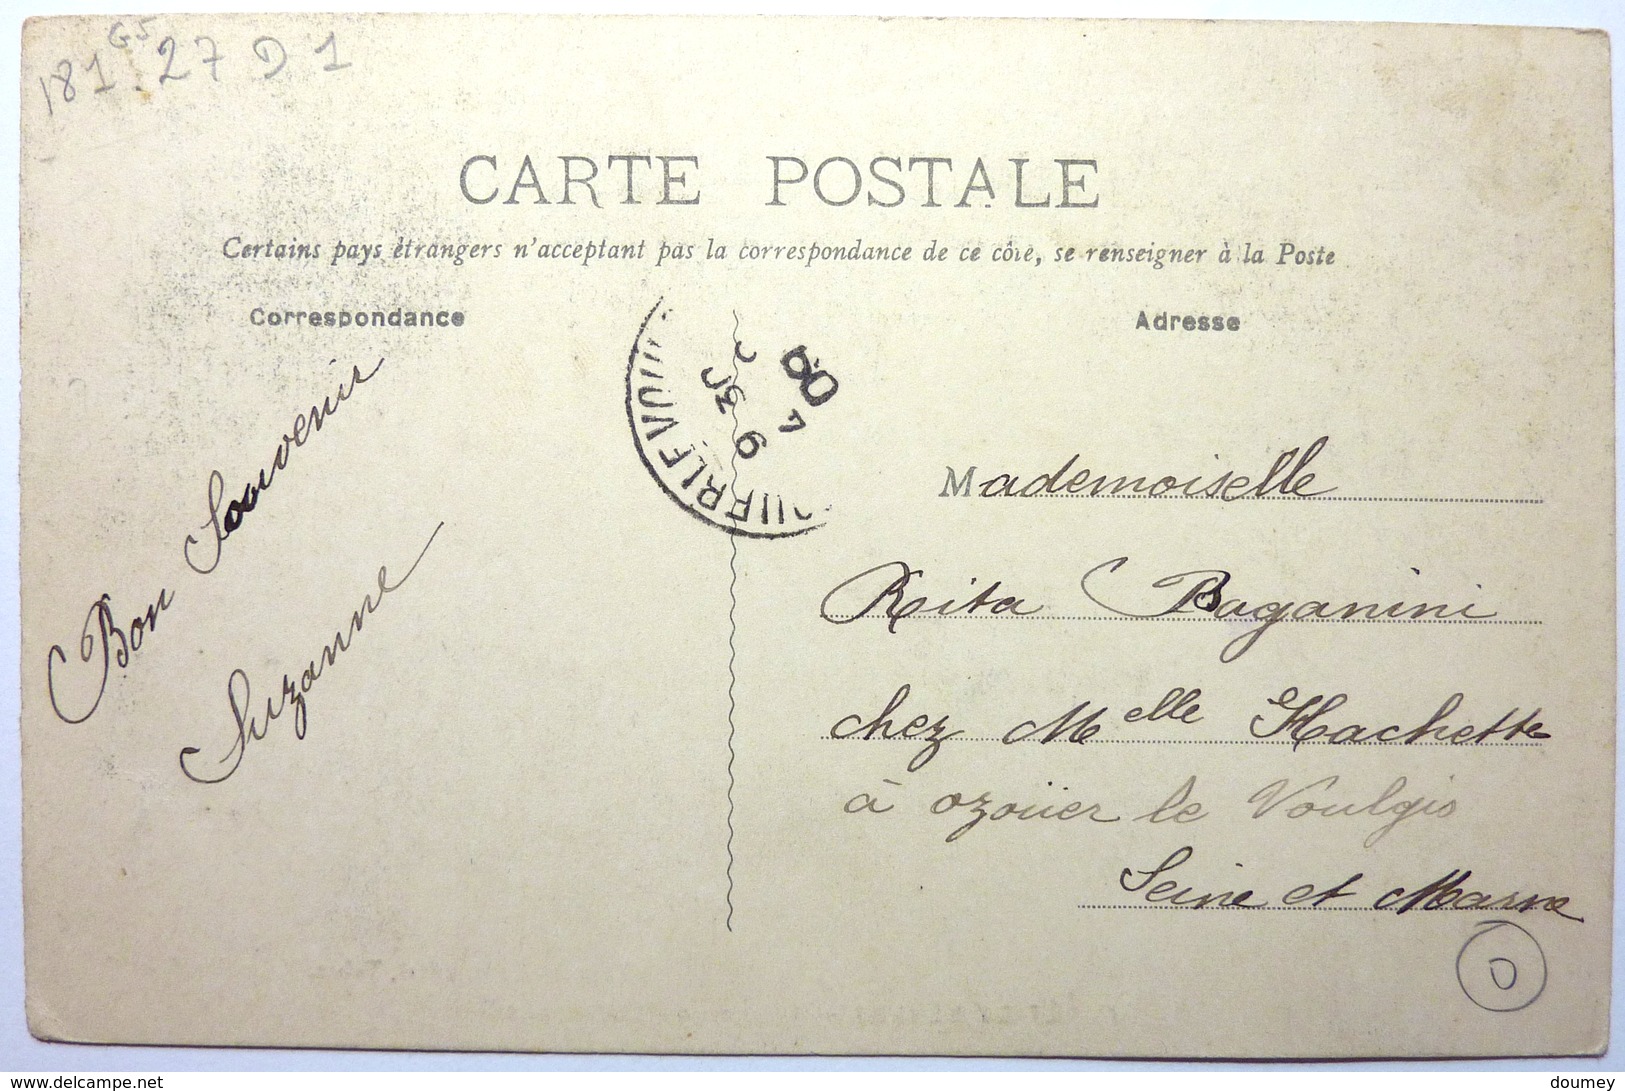 181 GS 27 D 1
CARTE POSTALE
Certains pays étrangers n'acceptant pas la correspondance de ce côté, se renseigner à la Poste
Correspondance
Adresse
Bon Souvenir
Suzanne
Mademoiselle
Rita Paganini
chez Melle Hachette
à ozoüer le Voulgis
Seine et Marne
www.delcampe.net
doumey